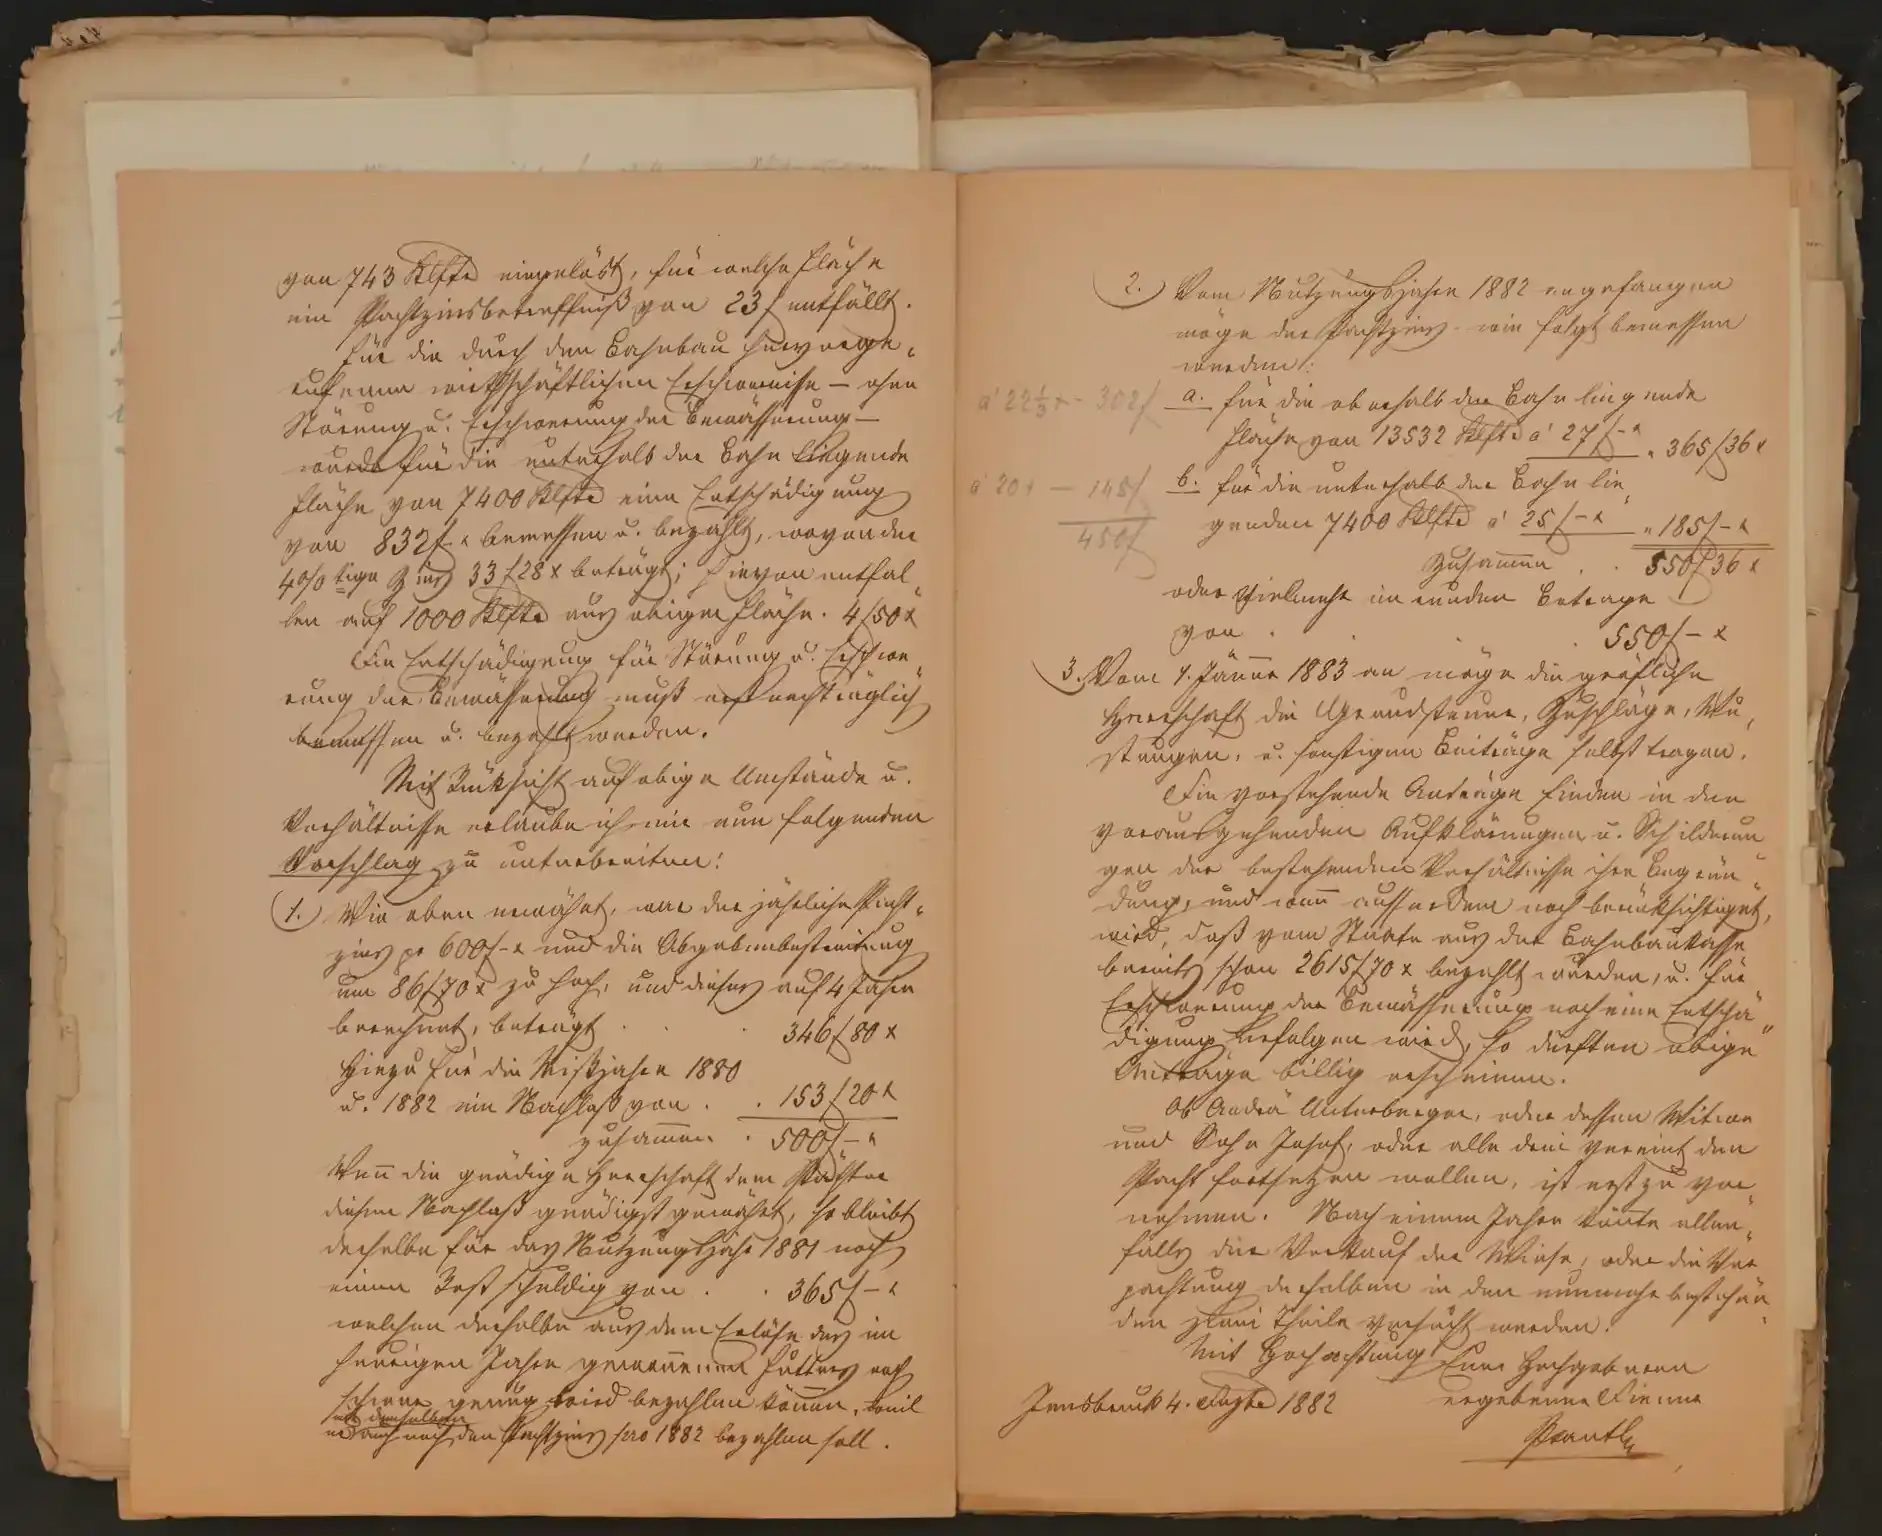 von 743 Klftr eingelöst, für welche Fläche
ein Pachtzinsbetreffniß von 23 f entfällt.
Für die durch den Bahnbau hervorge-
rufenen wirthschäftlichen Erschwernisse – ohne
Störung u. Erschwerung der Bewässerung –
wurde für die unterhalb der Bahn liegende
Fläche von 7400 Klftr eine Entschädigung
von 832 f – x bemessen u. bezahlt, wovon der
4% tige Zins 33 f 28 x beträgt; hievon entfal-
len auf 1000 Klftr aus obiger Fläche. 4 f 50 x
Die Entschädigung für Störung u. Erschwe-
rung der Bewässerung muß erst nachträglich
bemessen u. bezahlt werden.
Mit Rücksicht auf obige Umstände u.
Verhältnisse erlaube ich mir nun folgenden
Vorschlag zu unterbreiten:
1.) Wie oben erwähnt, war der jährliche Pacht-
zins pr 600 f – x und die Abgabenbestreitung
um 86 f 70 x zu hoch, und dieses auf 4 Jahre
berechnet, beträgt . . 346 f 80 x
Hiezu für die Mißjahre 1880
u. 1882 ein Nachlaß von . . 153 f 20 x
zusammen . 500 f – x
Wenn die gnädige Herrschaft dem Pächter
diesen Nachlaß gnädigst gewährt, so bleibt
derselbe für das Nutzungsjahr 1881 noch
einen Rest schuldig von . . 365 f – x
welchen derselbe aus dem Erlöse des im
heurigen Jahre gewonnenen Futters noch
schwer genug wird bezahlen können, weil
derselbe
er auch noch den Pachtzins pro 1882 bezahlen soll.
2.) Vom Nutzungsjahre 1882 angefangen
möge der Pachtzins wie folgt bemessen
werden:
à 22⅓ x – 302 f
a. für die oberhalb der Bahn liegende
Fläche von 13532 Klftr à 27 f – x " 365 f 36 x
à 20 x – 148 f
450 f
b. für die unterhalb der Bahn lie-
genden 7400 Klftr à 25 f – x " 185 f – x
Zusammen . . 550 f 36 x
oder vielmehr im runden Betrage
von . . . . 550 f – x
3.) Vom 1. Jänner 1883 an möge die gräfliche
Herrschaft die Grundsteuer, Zuschläge, Wu-
stungen, u. sonstigen Beiträge selbst tragen.
Die vorstehende Anträge finden in den
vorausgehenden Aufklärungen u. Schilderun-
gen der bestehenden Verhältnisse ihre Begrün-
dung, und wenn ausserdem noch berücksichtiget
wird, daß vom Staate aus der Bahnbaukasse
bereits schon 2615 f 70 x bezahlt wurden, u. für
Erschwerung der Bewässerung noch eine Entschä-
digung erfolgen wird, so dürften obige
Anträge billig erscheinen.
Ob Andrä Unterberger, oder dessen Witwe
und Sohn Josef, oder alle drei vereint den
Pacht fortsetzen wollen, ist erst zu ver-
nehmen. Nach einem Jahre könnte allen-
falls der Verkauf der Wiese, oder die Ver-
pachtung derselben in den nunmehr bestehen-
den zwei Theile versucht werden.
Mit Hochachtung Euer Hochgeboren
Innsbruck 4. Septbr 1882 ergebener Diener
Prantl